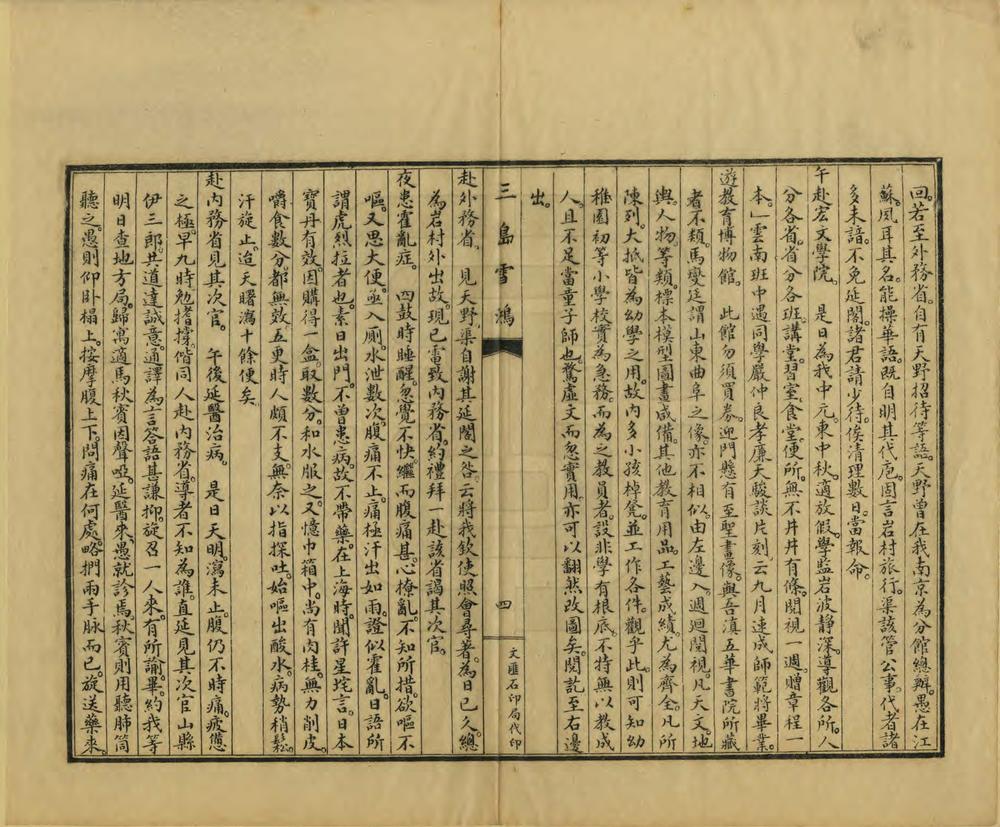 回。若至外務省。自有天野招待等語。天野曾在我南京為分館總辦。愚在江
蘇。夙耳其名。能操華語。既自明其代庖。因言岩村旅行。渠該管公事。代者諸
多未諳。不免延閣。諸君請少待。俟清理數日。當報命。
午赴宏文學院。 是日為我中元。東中秋。適放假。學監岩波靜深。導觀各所。人
分各省。省分各班。講堂。習室。食堂。便所。無不井井有條。閱視一週。贈章程一
本。」雲南班中遇同學嚴仲良孝廉天駿談片刻。云九月速成師範將畢業。
遊教育博物館。 此館勿須買券。迎門懸有至聖畫像。與吾滇五華書院所藏
者不類。馬燮廷謂山東曲阜之像。亦不相似。由左邊入。週迴閱視。凡天文。地
輿。人物。等類。標本模型圖畫咸備。其他教育用品。工藝成績。尤為齊全。凡所
陳列。大抵皆為幼學之用。故內多小孩棹凳。並工作各件。觀乎此。則可知幼
稚園初等小學校實為急務。而為之教員者。設非學有根底。不特無以教成
人。且不足當童子師也。騖虛文而忽實用。亦可以翻然改圖矣。閱訖至右邊
出。
三島雪鴻
四
文匯石印局代印
赴外務省。 見天野。渠自謝其延閣之咎。云將我欽使照會尋著。為日已久。總
為岩村外出故。現已電致內務省。約禮拜一赴該省謁其次官。
夜患霍亂症。 四鼓時睡醒。忽覺不快。繼而腹痛甚。心撩亂。不知所措。欲嘔不
嘔。又思大便。亟入廁。水泄數次。腹痛不止。痛極汗出如雨。證似霍亂。日語所
謂虎烈拉者也。素日出門。不曾患病。故不帶藥。在上海時。聞許星垞言。日本
寶丹有效。因購得一盒。取數分。和水服之。又憶巾箱中。尚有肉桂。無力削皮。
嚼食數分。都無效。五更時人頗不支。無奈以指探吐。始嘔出酸水。病勢稍鬆。
汗旋止。迨天曙瀉十餘便矣。
赴內務省見其次官。 午後延醫治病。 是日天明。瀉未止。腹仍不時痛。疲憊
之極。早九時勉撐。偕同人赴內務省。導者不知為誰。直延見其次官山縣
伊三郎。共道達誠意。通譯為言答語甚謙抑。旋召一人來。有所諭。畢約我等
明日查地方局。歸寓適馬秋賓因聲啞。延醫來。愚就診。馬秋賓則用聽肺筒
聽之。愚則仰卧榻上。按摩腹上下。問痛在何處。略捫兩手脉而已。旋送藥來。